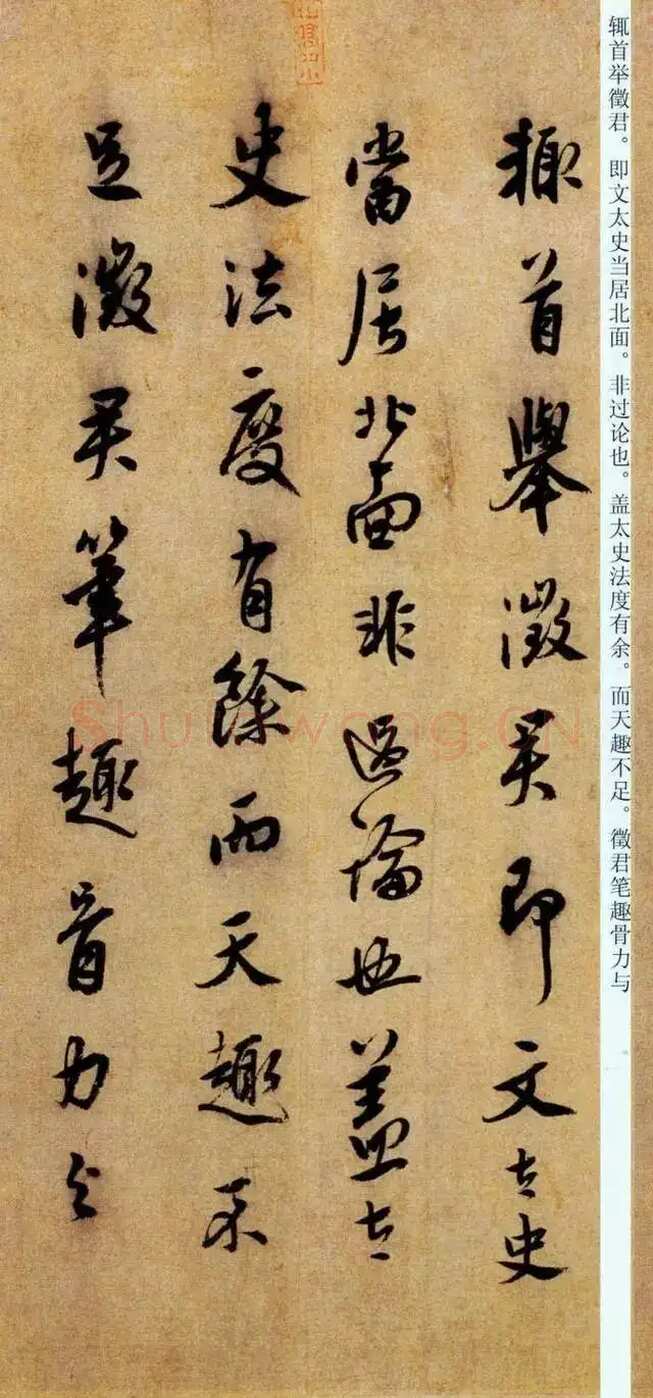 輙首舉徵君即文太史
當居北面非過論也蓋太
史法度有餘而天趣不
足徵君筆趣骨力与
辄首举徵君。即文太史当居北面。非过论也。盖太史法度有余。而天趣不足。徵君笔趣骨力与